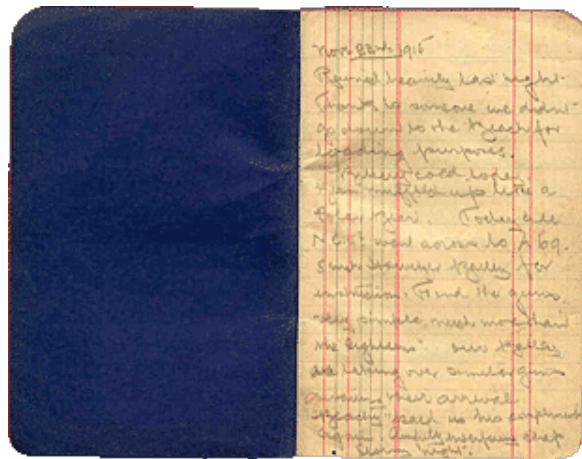 Nov 22nd 1915
Rained heavily last night.
Thanks to someone we didnt
go down to the Beach for
loading purposes.
Bitter cold today
muffled up like a
Polar Bear. Today all
N.C.O's went across to A 69.
5 inch Howitzer Battery for
instruction. Find the guns
very simple, much more than
the eighteens. Our Battery
are taking over similar guns
their arrival
"Beachy" paid us his compliments
again. Awfully chap
Stormy night.